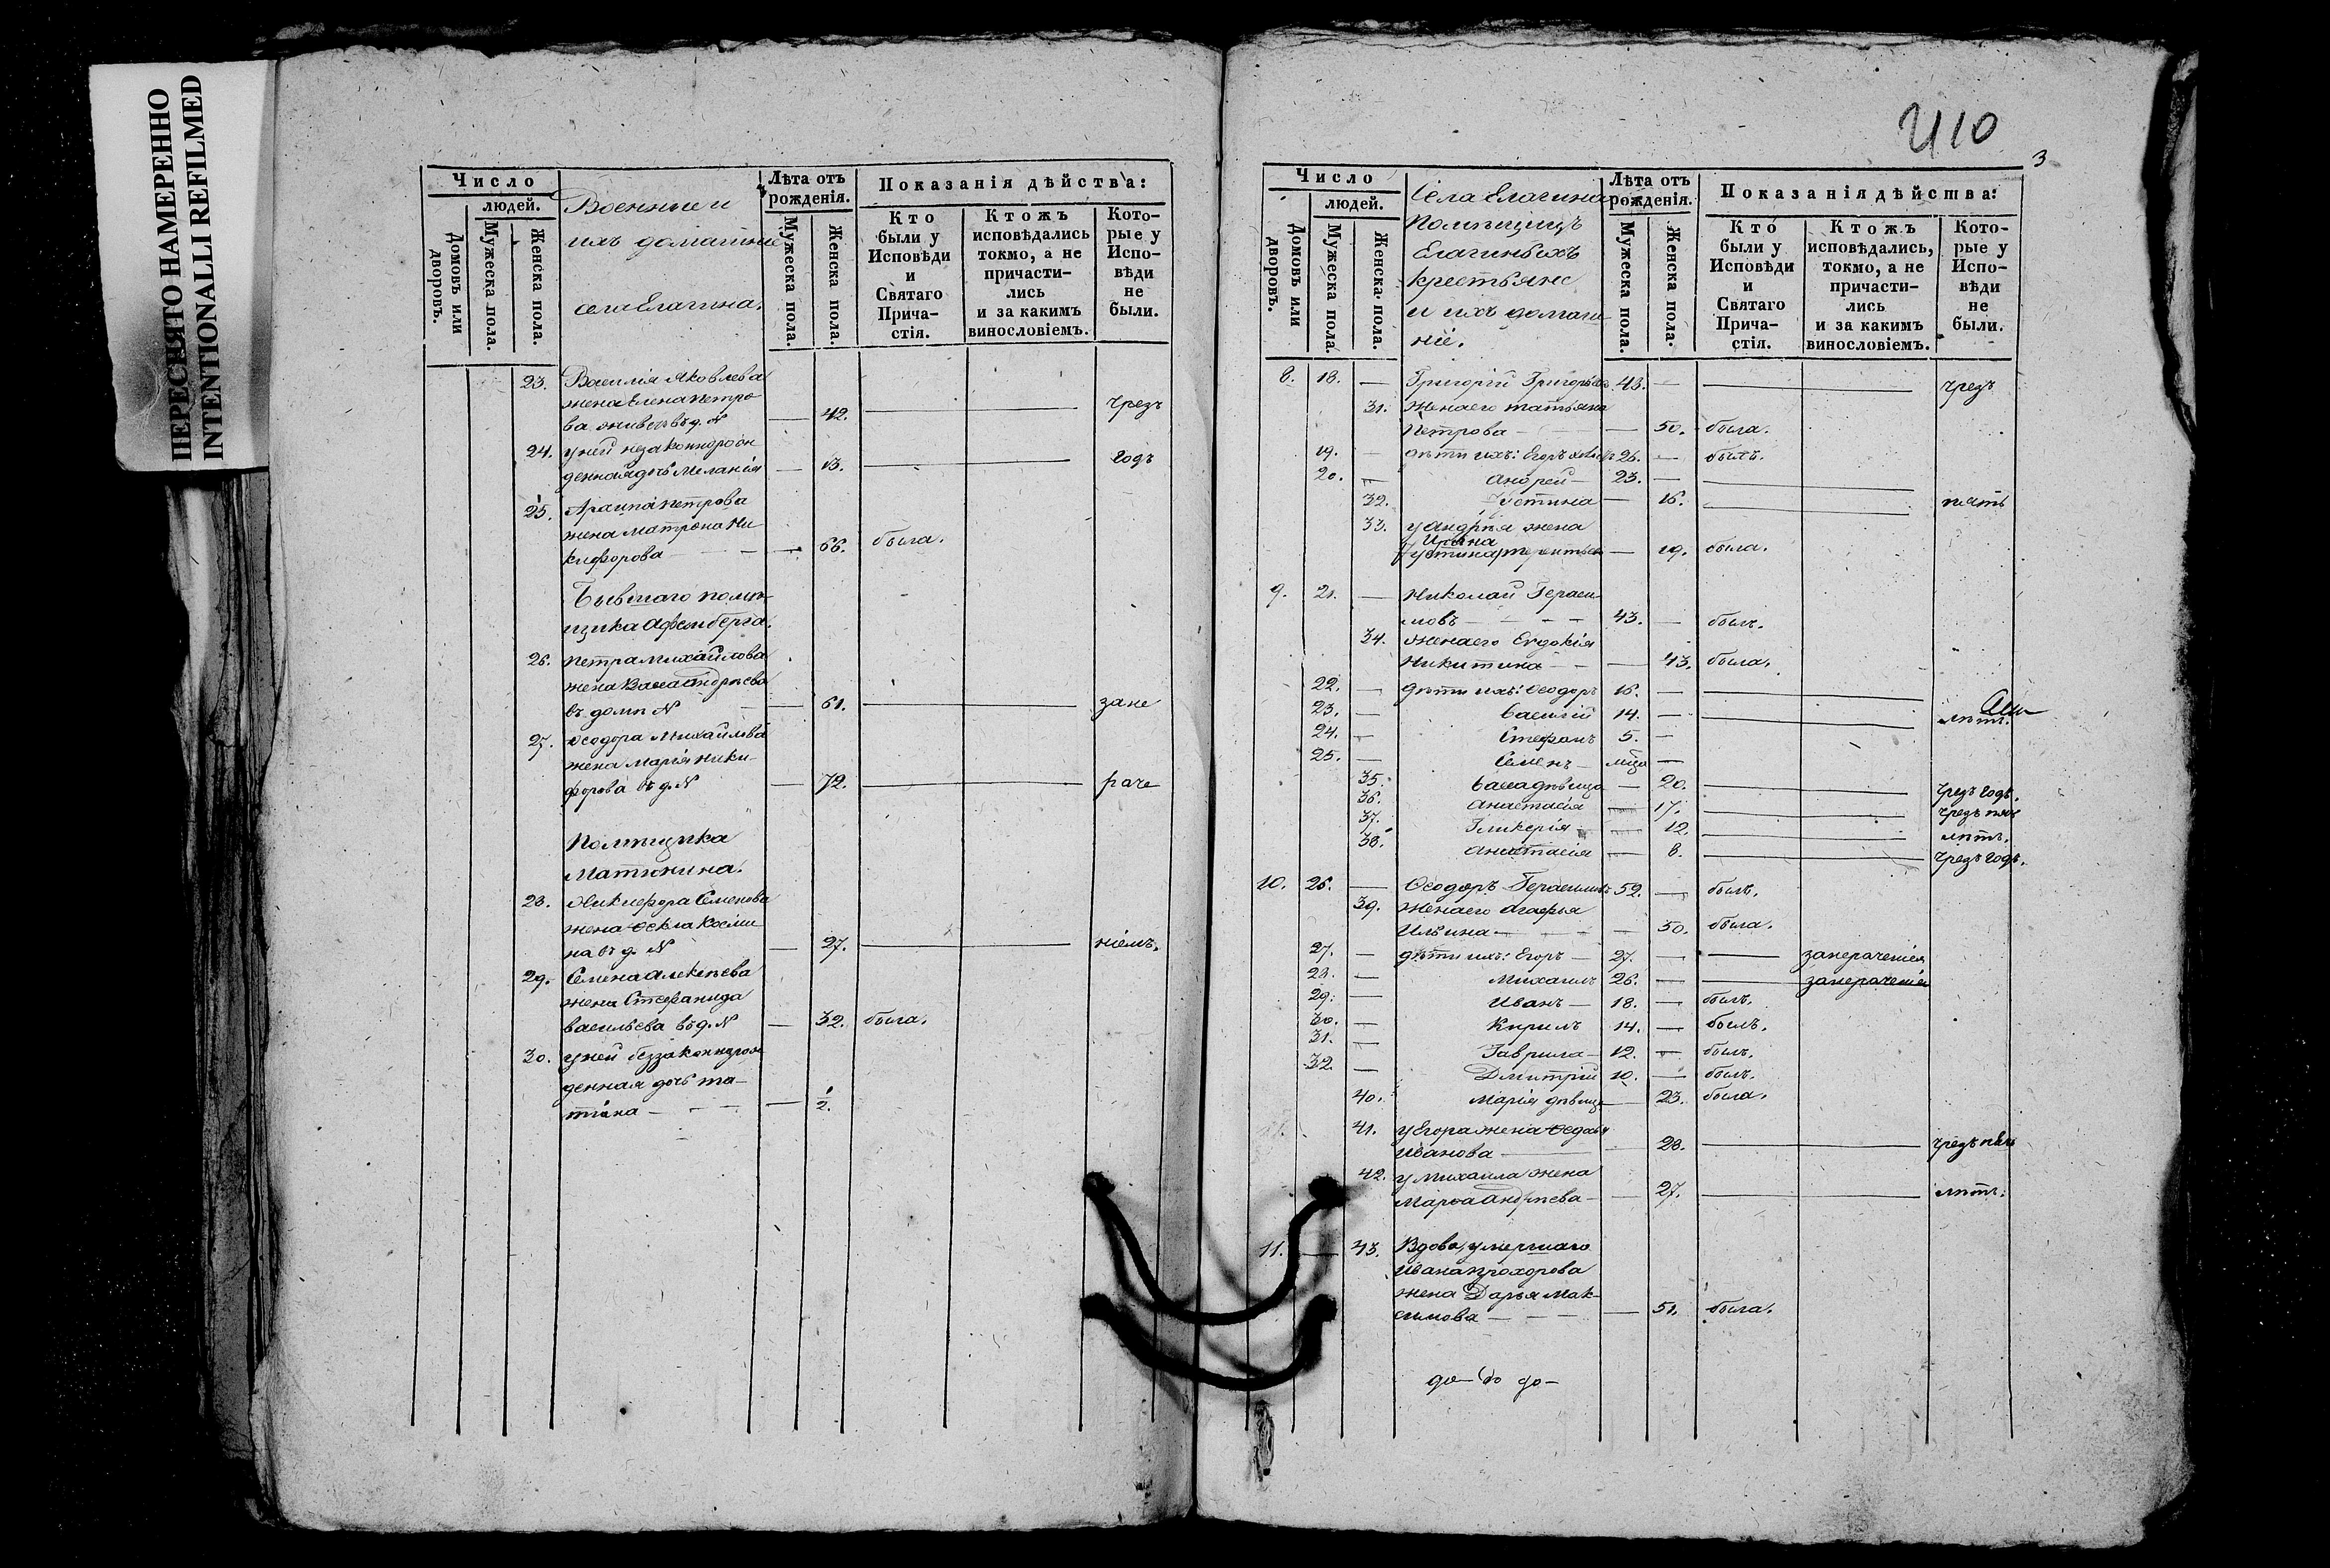 ПЕРЕСНЯТО НАМЕРЕННО
INTENTIONALLI REFILMED
Число
людей.
Домовъ или дворовъ.
Мужеска пола.
Женска пола.
Военные и
ихъ домашніе
села Елагина.
Лѣта отъ рожденія.
Мужеска пола.
Женска пола.
Показанія дѣйства:
Кто были у Исповѣди и Святаго Прича-стія.
Ктожъ исповѣдались токмо, а не причасти-лись и за какимъ винословіемъ.
Кото-рые у Испо-вѣди не были.
23. Василія Яковлева
жена Елена Петро
ва живетъ въ д. N — 42. — чрезъ
24. у ней незаконнорож
денная дочь Меланія — 13. — годъ
25. Петрова
жена Матрона Ни
кифорова — 66. была.
Бывшаго помѣ-
щика
26. Петра Михайлова
жена Васса Андрѣева
въ домѣ N — 61. — зане
27. Ѳеодора Михайлова
жена Марія Ники-
форова въ д. N — 72. — раче
Помѣщика
Матюнина.
28. Никифора Семенова
жена Ѳекла Косми
на въ д. N — 27. — ніемъ.
29. Семена Алексѣева
жена Стефанида
Васильева въ д. N — 32. была.
30. у ней беззаконнорож
денная дочь Та-
тіана — 1/2.
410
3
Число
людей.
Домовъ или дворовъ.
Мужеска пола.
Женска пола.
Села Елагина
Помѣщицъ
Елагиныхъ
крестьяне
и ихъ домаш
ніе.
Лѣта отъ рожденія.
Мужеска пола.
Женска пола.
Показанія дѣйства:
Кто были у Исповѣди и Святаго Прича-стія.
Ктожъ исповѣдались, токмо, а не причасти-лись и за какимъ винословіемъ.
Кото-рые у Испо-вѣди не были.
8. 18. — Григорій Григорьевъ 43. — чрезъ
31. жена его Татьяна
Петрова — 50. была.
19. — дѣти ихъ: Егоръ 26. — былъ.
20. — Андрей — 23. —
32. Устина — 16. — пять
33. у Андрѣя жена
Ирина
Устина Терентьева — 19. была.
9. 21. — Николай Гераси
мовъ — 43. — былъ.
34. жена его Евдокія
Никитина — 43. была.
22. — дѣти ихъ: Ѳеодоръ 16. —
23. — Василій 14. — лѣтъ.
24. — Стефанъ 5. —
25. — Семенъ — мѣсяца —
35. Васса дѣвица — 20. — чрезъ годъ.
36. Анастасія — 17. — чрезъ пять
37. Гликерія — 12. — лѣтъ.
38. Анастасія — 8. — чрезъ годъ.
10. 26. — Ѳеодоръ Герасимовъ 52. — былъ.
39. жена его Агафья
Ильина — 50. была.
27. — дѣти ихъ: Егоръ — 27. — занераченіемъ
28. — Михаилъ 26. — занераченіемъ
29. — Иванъ — 18. — былъ.
30. — Кирилъ 14. — былъ.
31. — Гаврила — 12. — былъ.
32. — Дмитрій 10. — былъ.
40. Марія дѣвица — 23. была.
41. у Егора жена Ѳедосья
Иванова — 28. — чрезъ пять
42. у Михаила жена
Марѳа Андрѣева — 27. — лѣтъ.
11. — 43. Вдова, умершаго
Ивана Прохорова
жена Дарья Мак-
симова — 51. была.